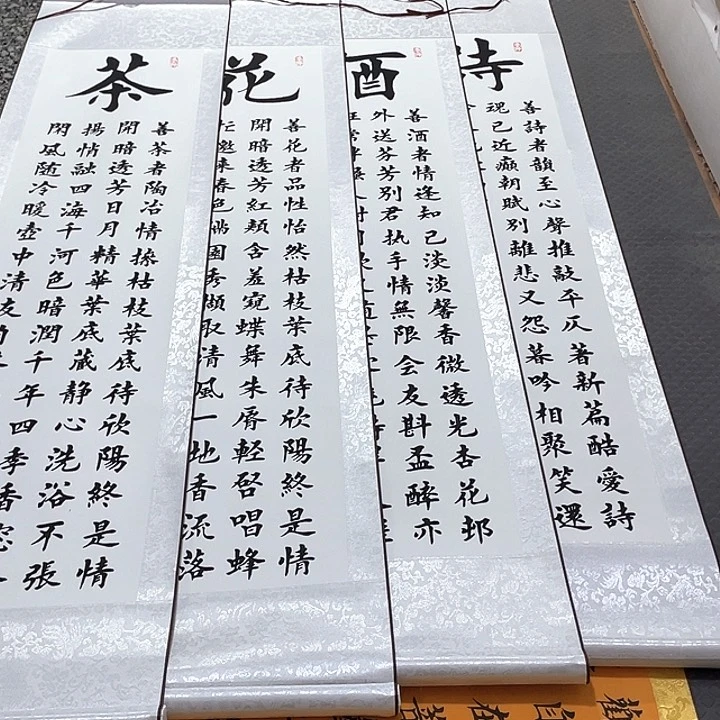 詩
善詩者韻至心聲推敲平仄著新篇酷愛詩
已近癲朝賦別離悲又怨暮吟相聚笑還
酒
善酒者情逢知己淡淡馨香微透光杏花邨
外送芬芳別君执手情無限会友斟盃醉亦
花
善花者品性怡然枯枝葉底待欣陽終是情
開暗透芳紅頰含羞窺蝶舞朱脣輕啓唱蜂
忙邀来春色滿園秀擷取清風一地香流落
茶
善茶者陶冶情操枯枝葉底待欣陽終是情
開暗透芳日月精華葉底藏静心洗浴不張
揚情融四海千河色暗潤千年四季香
閑風随冷暖壺中清友
自在